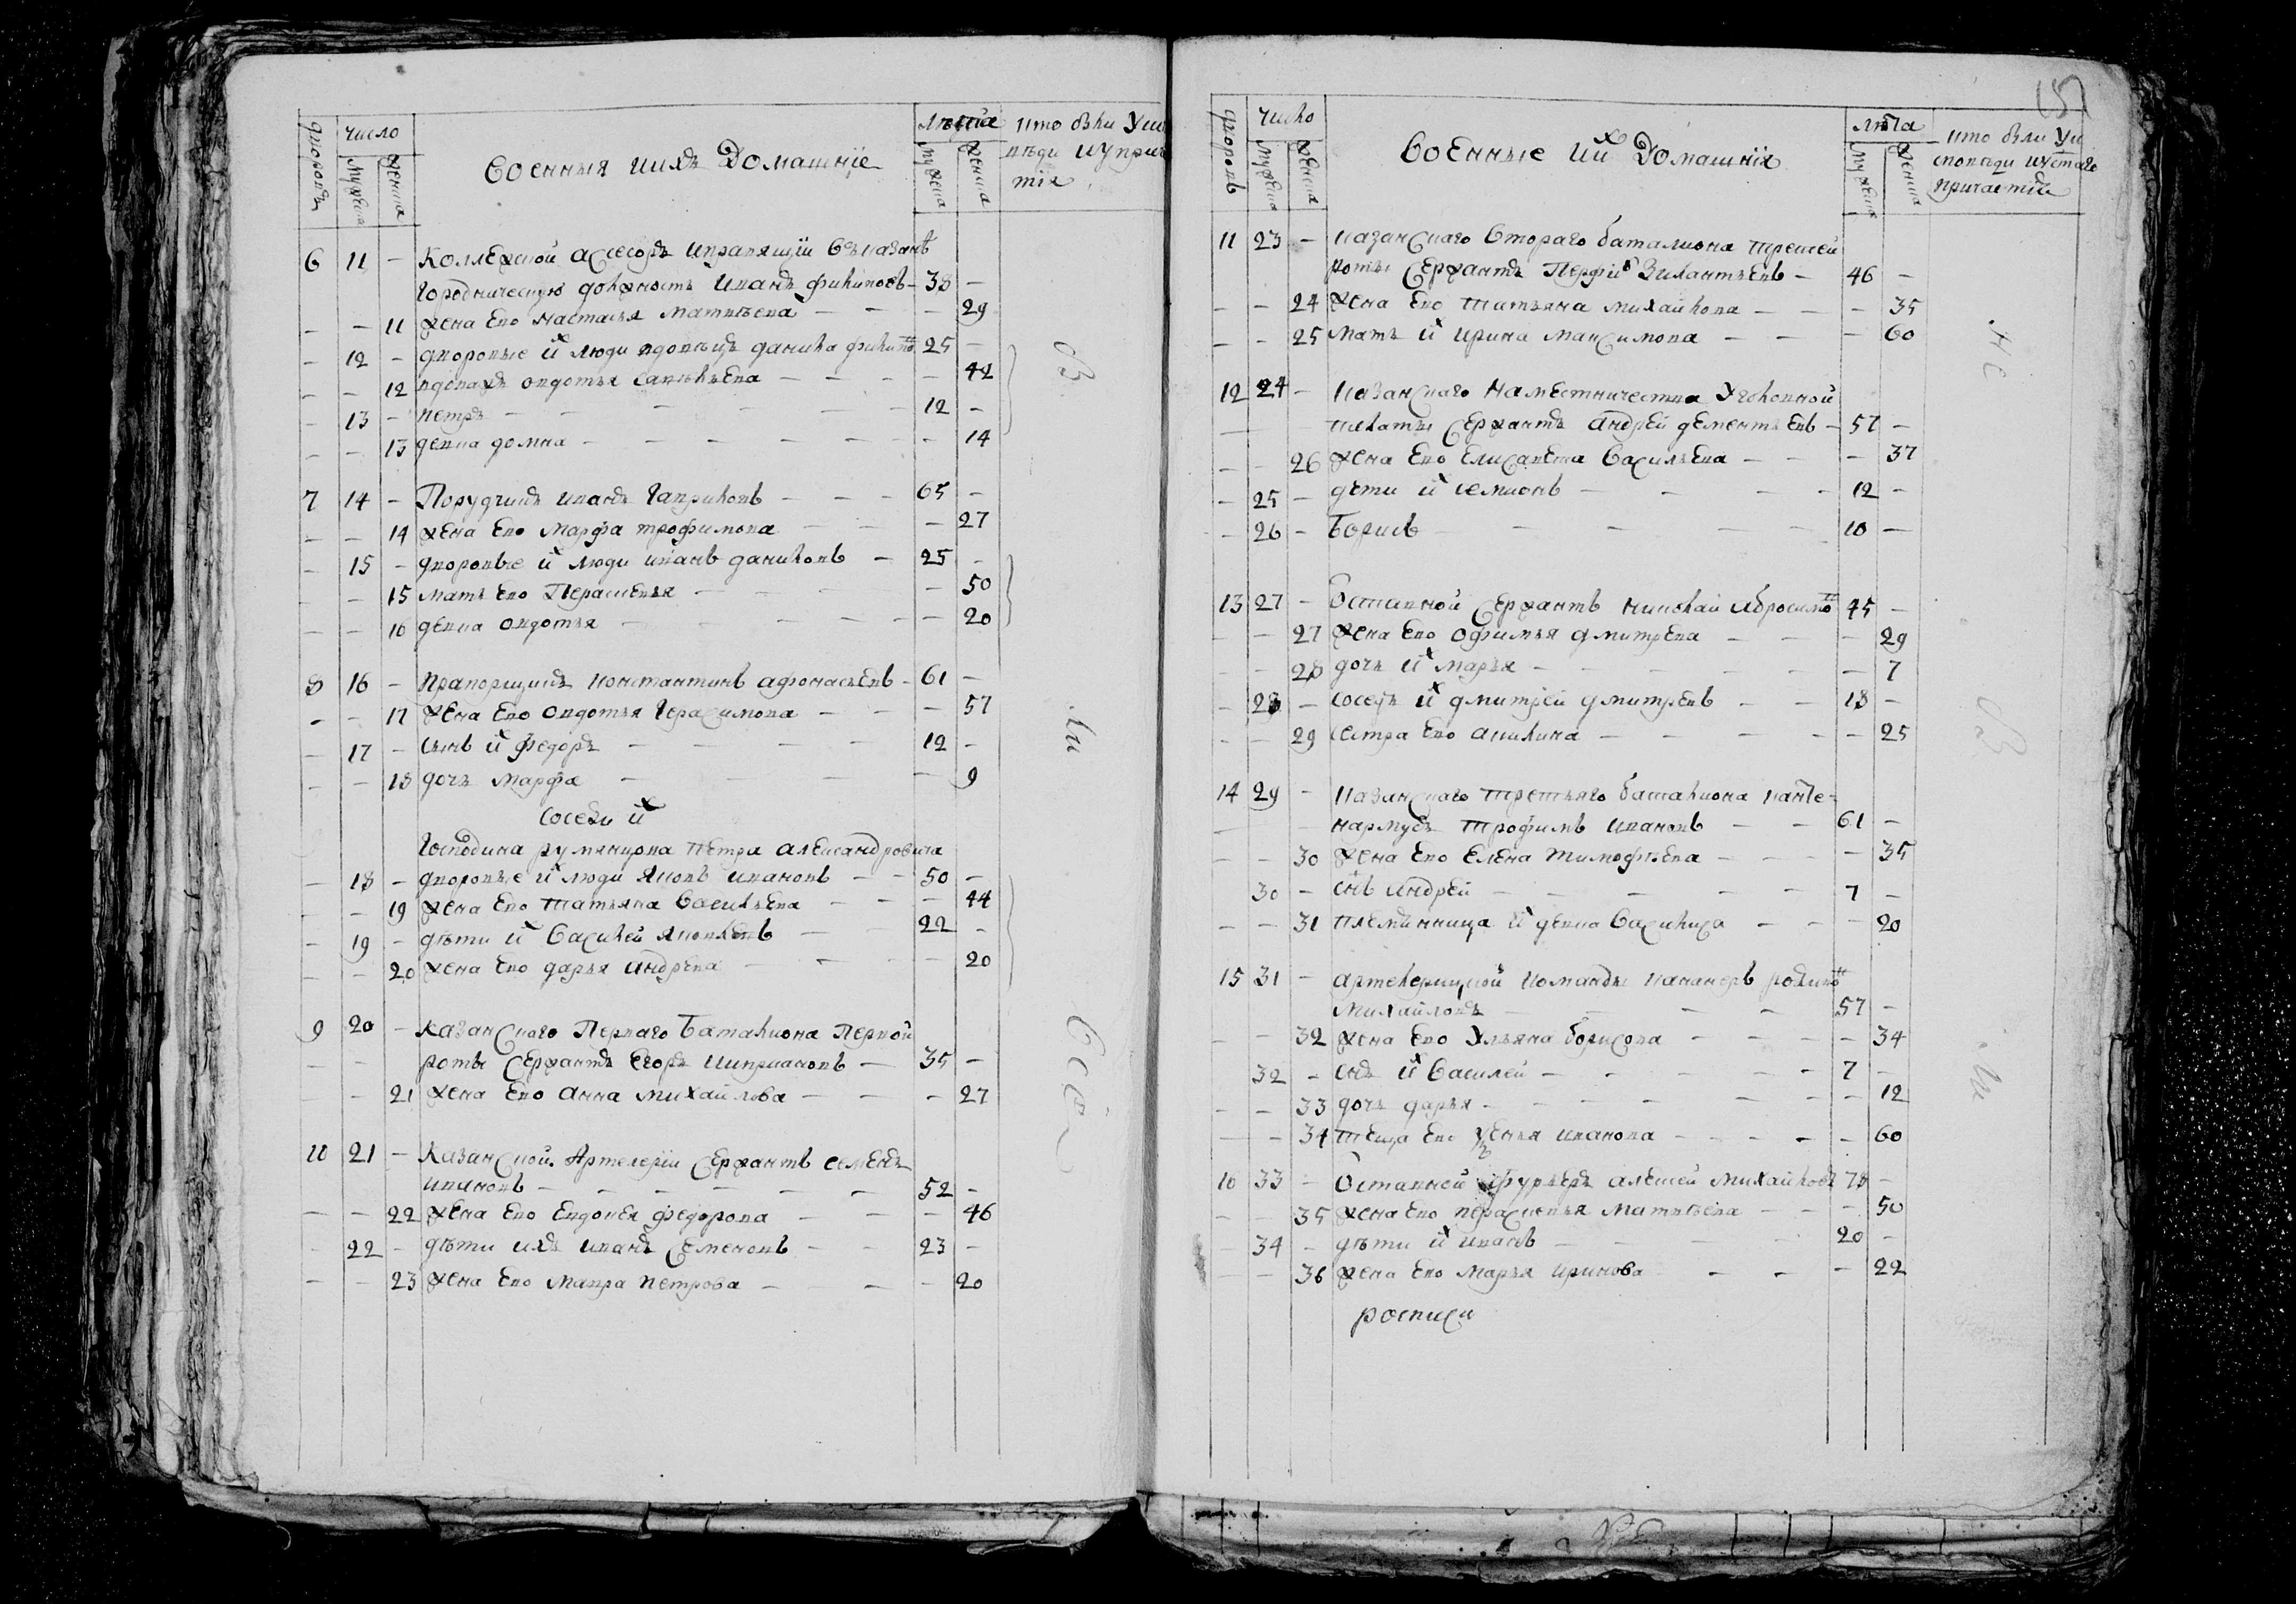 дворовъ число мужеска женска Военныя и ихъ Домашнїе лѣта мужеска женска кто были у испо
вѣди и у прич
тїя
6 11 – Коллежской асесоръ и правящїй въ казанѣ
городническую должность Иванъ филиповъ – 38 –
– – 11 жена Ево настасья матвѣева – – – 29
– 12 – дворовые их люди вдовецъ данила филипов 25 –
– – 12 вдовахъ овдотья савельева – – – – 42
– 13 – петръ – – – – – 12 –
– – 13 девка домна – – – – – – 14
7 14 – Порутчикъ иванъ гавриловъ – – – 65 –
– – 14 жена Ево марфа трофимова – – – 27
– 15 – дворовые их люди иванъ даниловъ – 25 –
– – 15 мать Ево Парасковья – – – – 50
– – 16 девка овдотья – – – – – 20
8 16 – Прапорщикъ константинъ афонасьевъ – 61 –
– – 17 жена Ево овдотья герасимова – – – 57
– 17 – сынъ их федоръ – – – – 12 –
– – 18 дочь марфа – – – – 9
соседи их
господина румянцова петра александровича
– 18 – дворовые их люди яковъ ивановъ – – 50 –
– – 19 жена Ево татьяна васильева – – – 44
– 19 – дѣти их василей яковлевъ – – 22 –
– – 20 жена Ево дарья андрева – – – – 20
9 20 – Казанского Перваго Баталиона Первой
– – роты сержантъ Егоръ киприановъ – 35 –
– – 21 жена Ево анна михайлова – – – 27
10 21 – Казанской Артелерїи сержантъ семенъ
ивановъ – – – – – – 52 –
– – 22 жена Ево Евдокея федорова – – – 46
– 22 – дѣти ихъ иванъ семеновъ – – 23 –
– – 23 жена Ево мавра петрова – – – 20
вси
дворовъ число мужеска женска Военные их Домашнїя лѣта мужеска женска кто были у и
споведи и у стаго
причастїя
11 23 – казанского втораго баталиона третей
роты сержантъ Перфил Зилантьевъ – 46 –
– – 24 жена Ево татьяна михайлова – – – 35
– – 25 мать их ирина максимова – – – 60
12 24 – казанского наместничества уголовной
палаты сержантъ андрей дементьевъ – 57 –
– – 26 жена Ево Елисавета васильева – – – 37
– 25 – дѣти их семионъ – – – – 12 –
– 26 – Борисъ – – – – 10 –
13 27 – Отставной сержантъ николай абросимо 45 –
– – 27 жена Ево офимья дмитрева – – – 29
– – 28 дочь их марья – – – – – – 7
– 28 – соседъ их дмитрей дмитревъ – – 18 –
– – 29 сестра Ево акилина – – – – – 25
14 29 – казанского третьяго баталиона капте-
нармусъ трофимъ ивановъ – – 61 –
– – 30 жена Ево Елена тимофѣева – – – – 35
30 – снъ андрей – – – – – 7 –
– – 31 племянница их девка василиса – – – 20
15 31 – артелерицкой команды канонеръ родион
михайловъ – – – – 57 –
– – 32 жена Ево ульяна борисова – – – – 34
32 – снъ их василей – – – – – 7 –
– – 33 дочь дарья – – – – – – – 12
– – 34 теща Ево иванова – – – – – 60
16 33 – Отставной фурьеръ алексей михайловъ 78 –
– – 35 жена Ево парасковья матвѣева – – – 50
– 34 – дѣти их иванъ – – – – 20 –
– – 36 жена Ево марья – – – 22
росписи